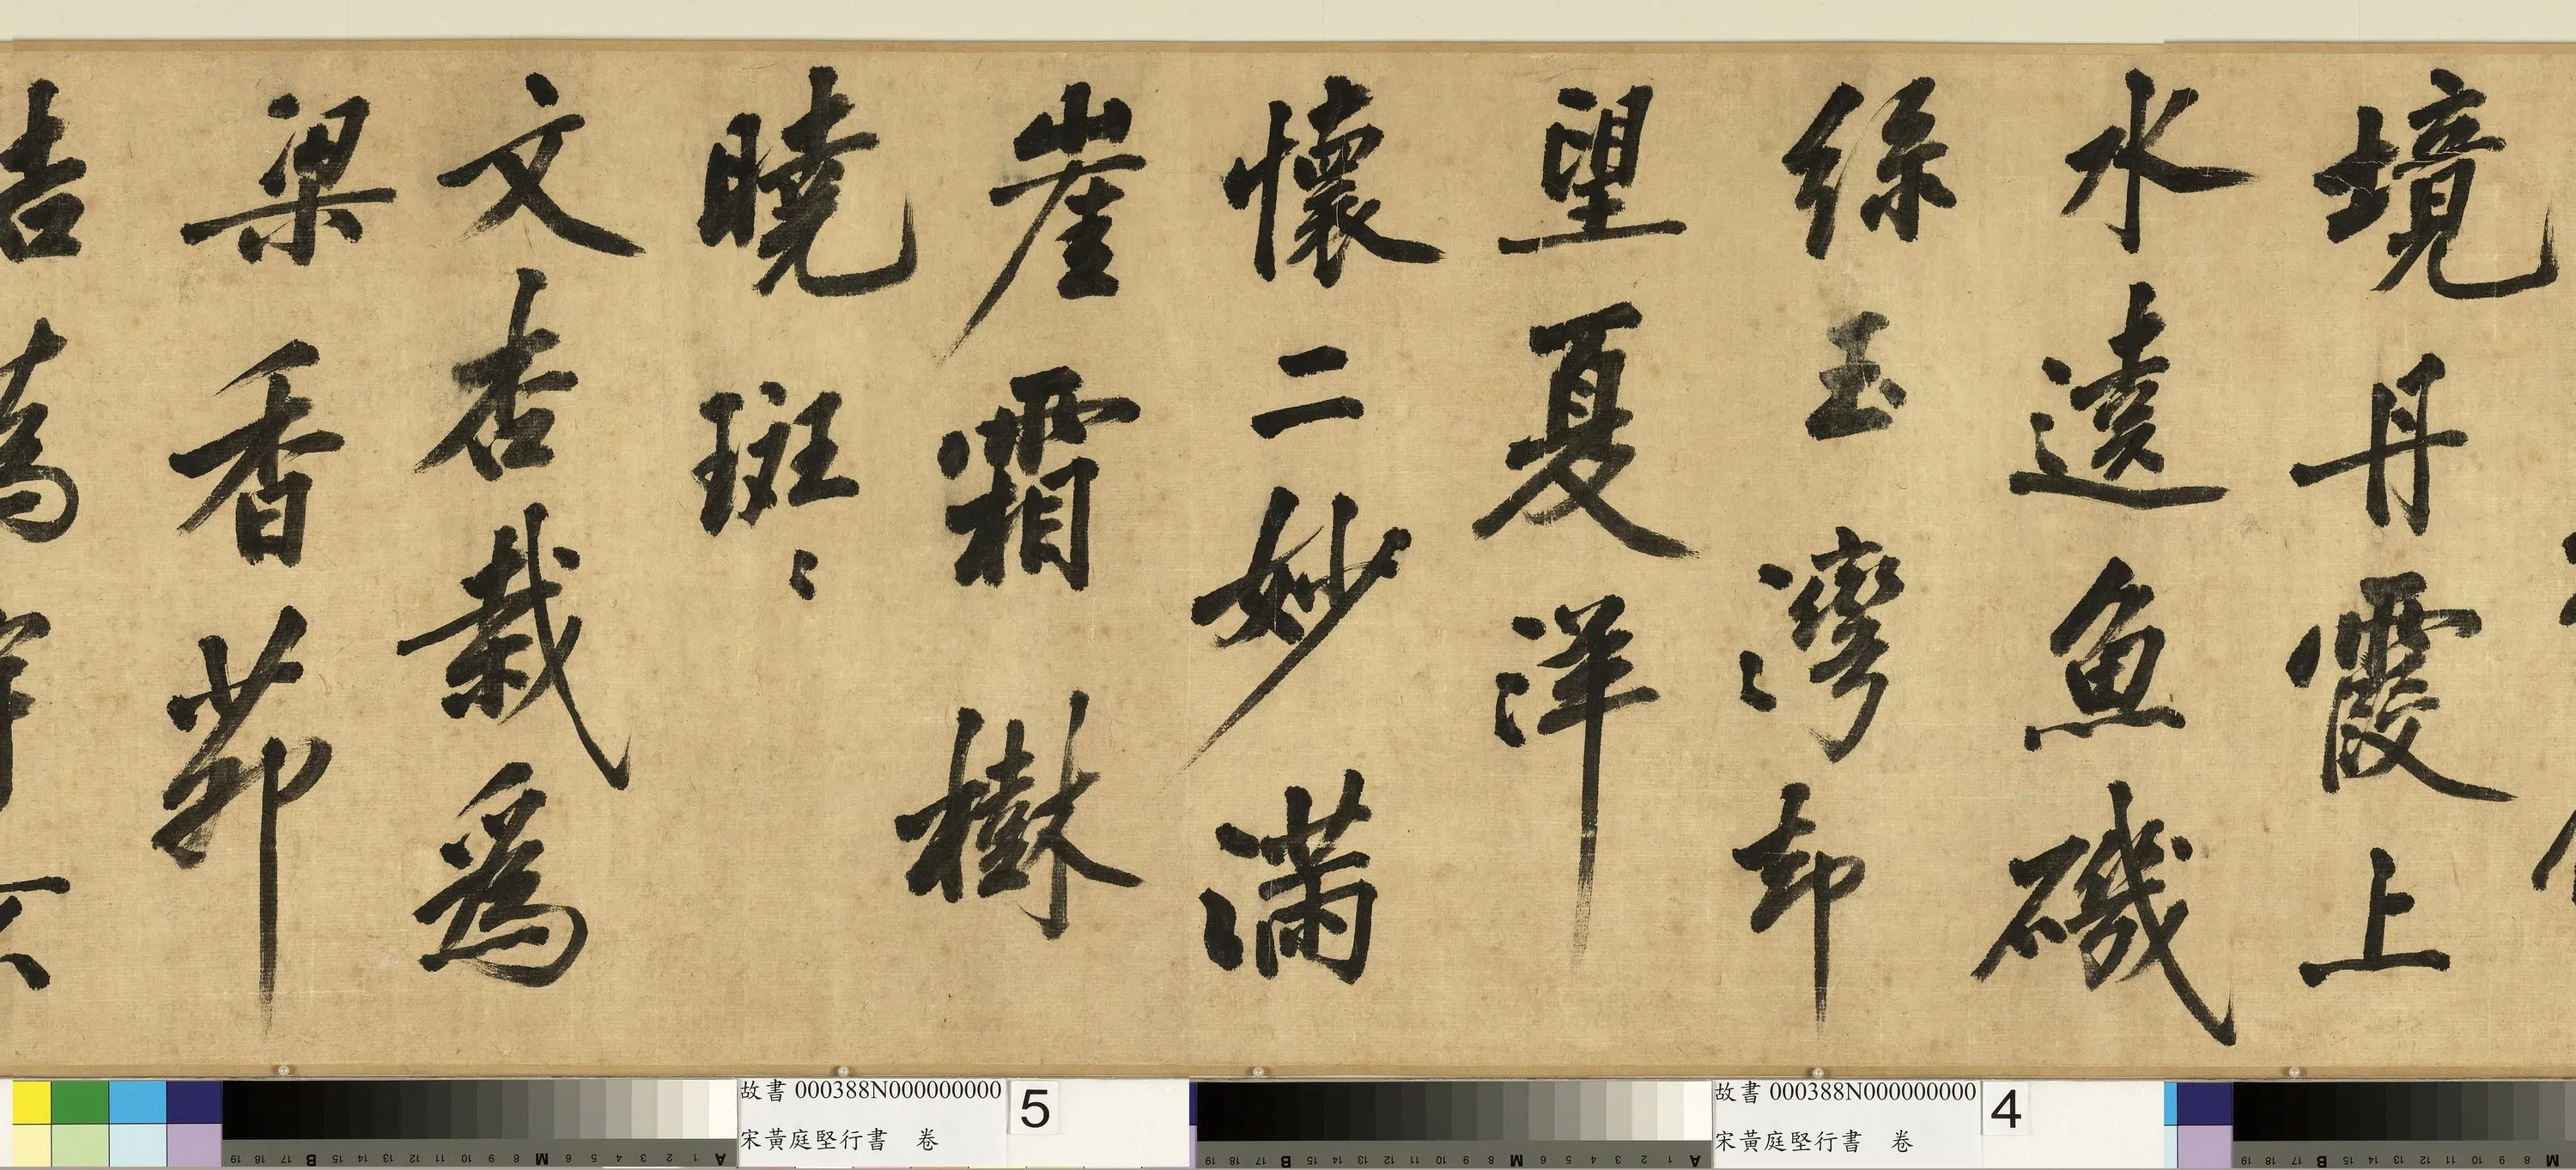 境丹霞上
水遠魚磯
絲玉灣灣却
望夏洋
懷二妙滿
崖霜樹
曉斑斑
文杏栽為
梁香茆
故書 000388N000000000
宋黃庭堅行書 卷
5
故書 000388N000000000
宋黃庭堅行書 卷
4